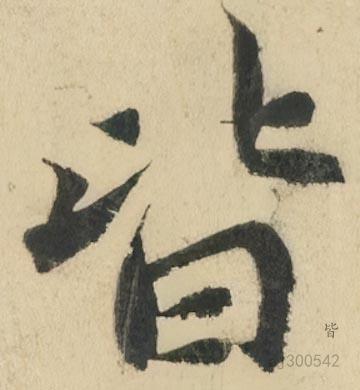 皆
皆
g300542